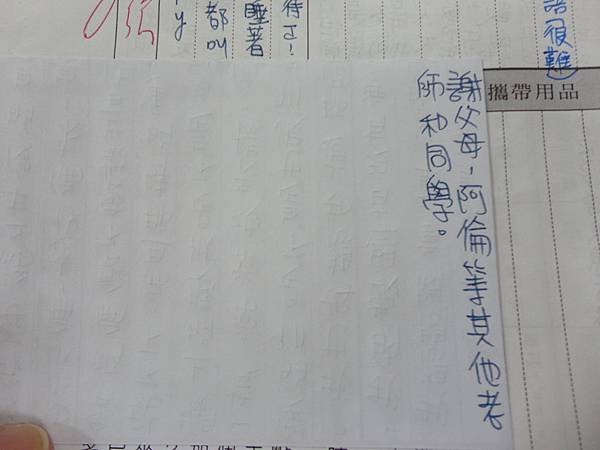 語很難
攜帶用品
謝父母，阿倫等其他老
師和同學。
待了！
睡著
都叫
y